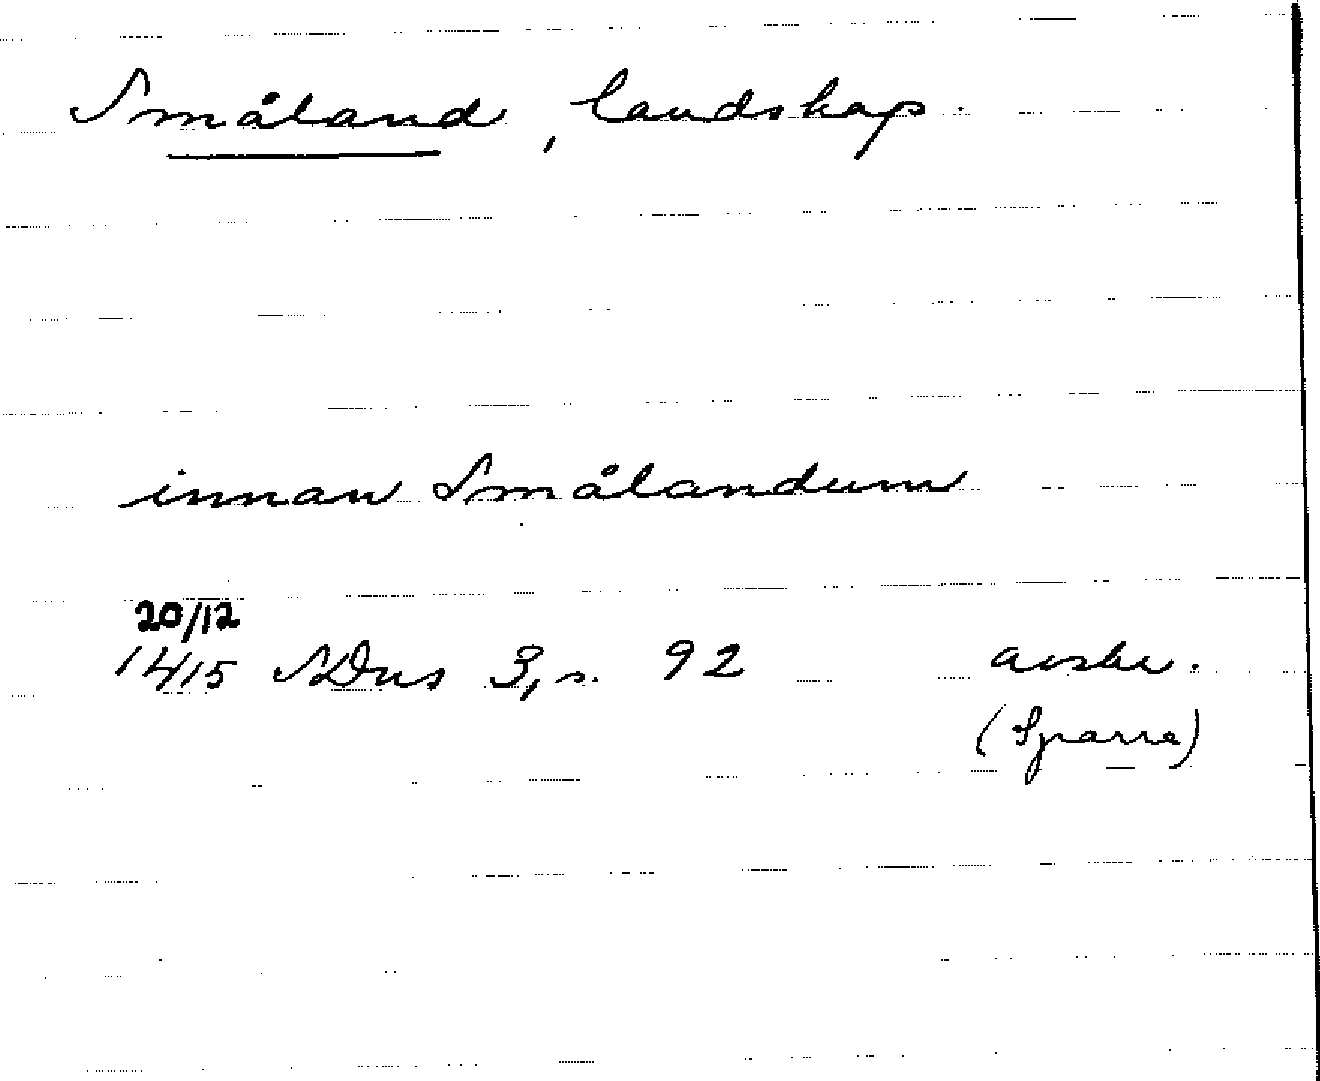 Småland, landskap.
innan Smålandum
20/12
1415 SDns 3, s. 92 avskr.
(Sparre)